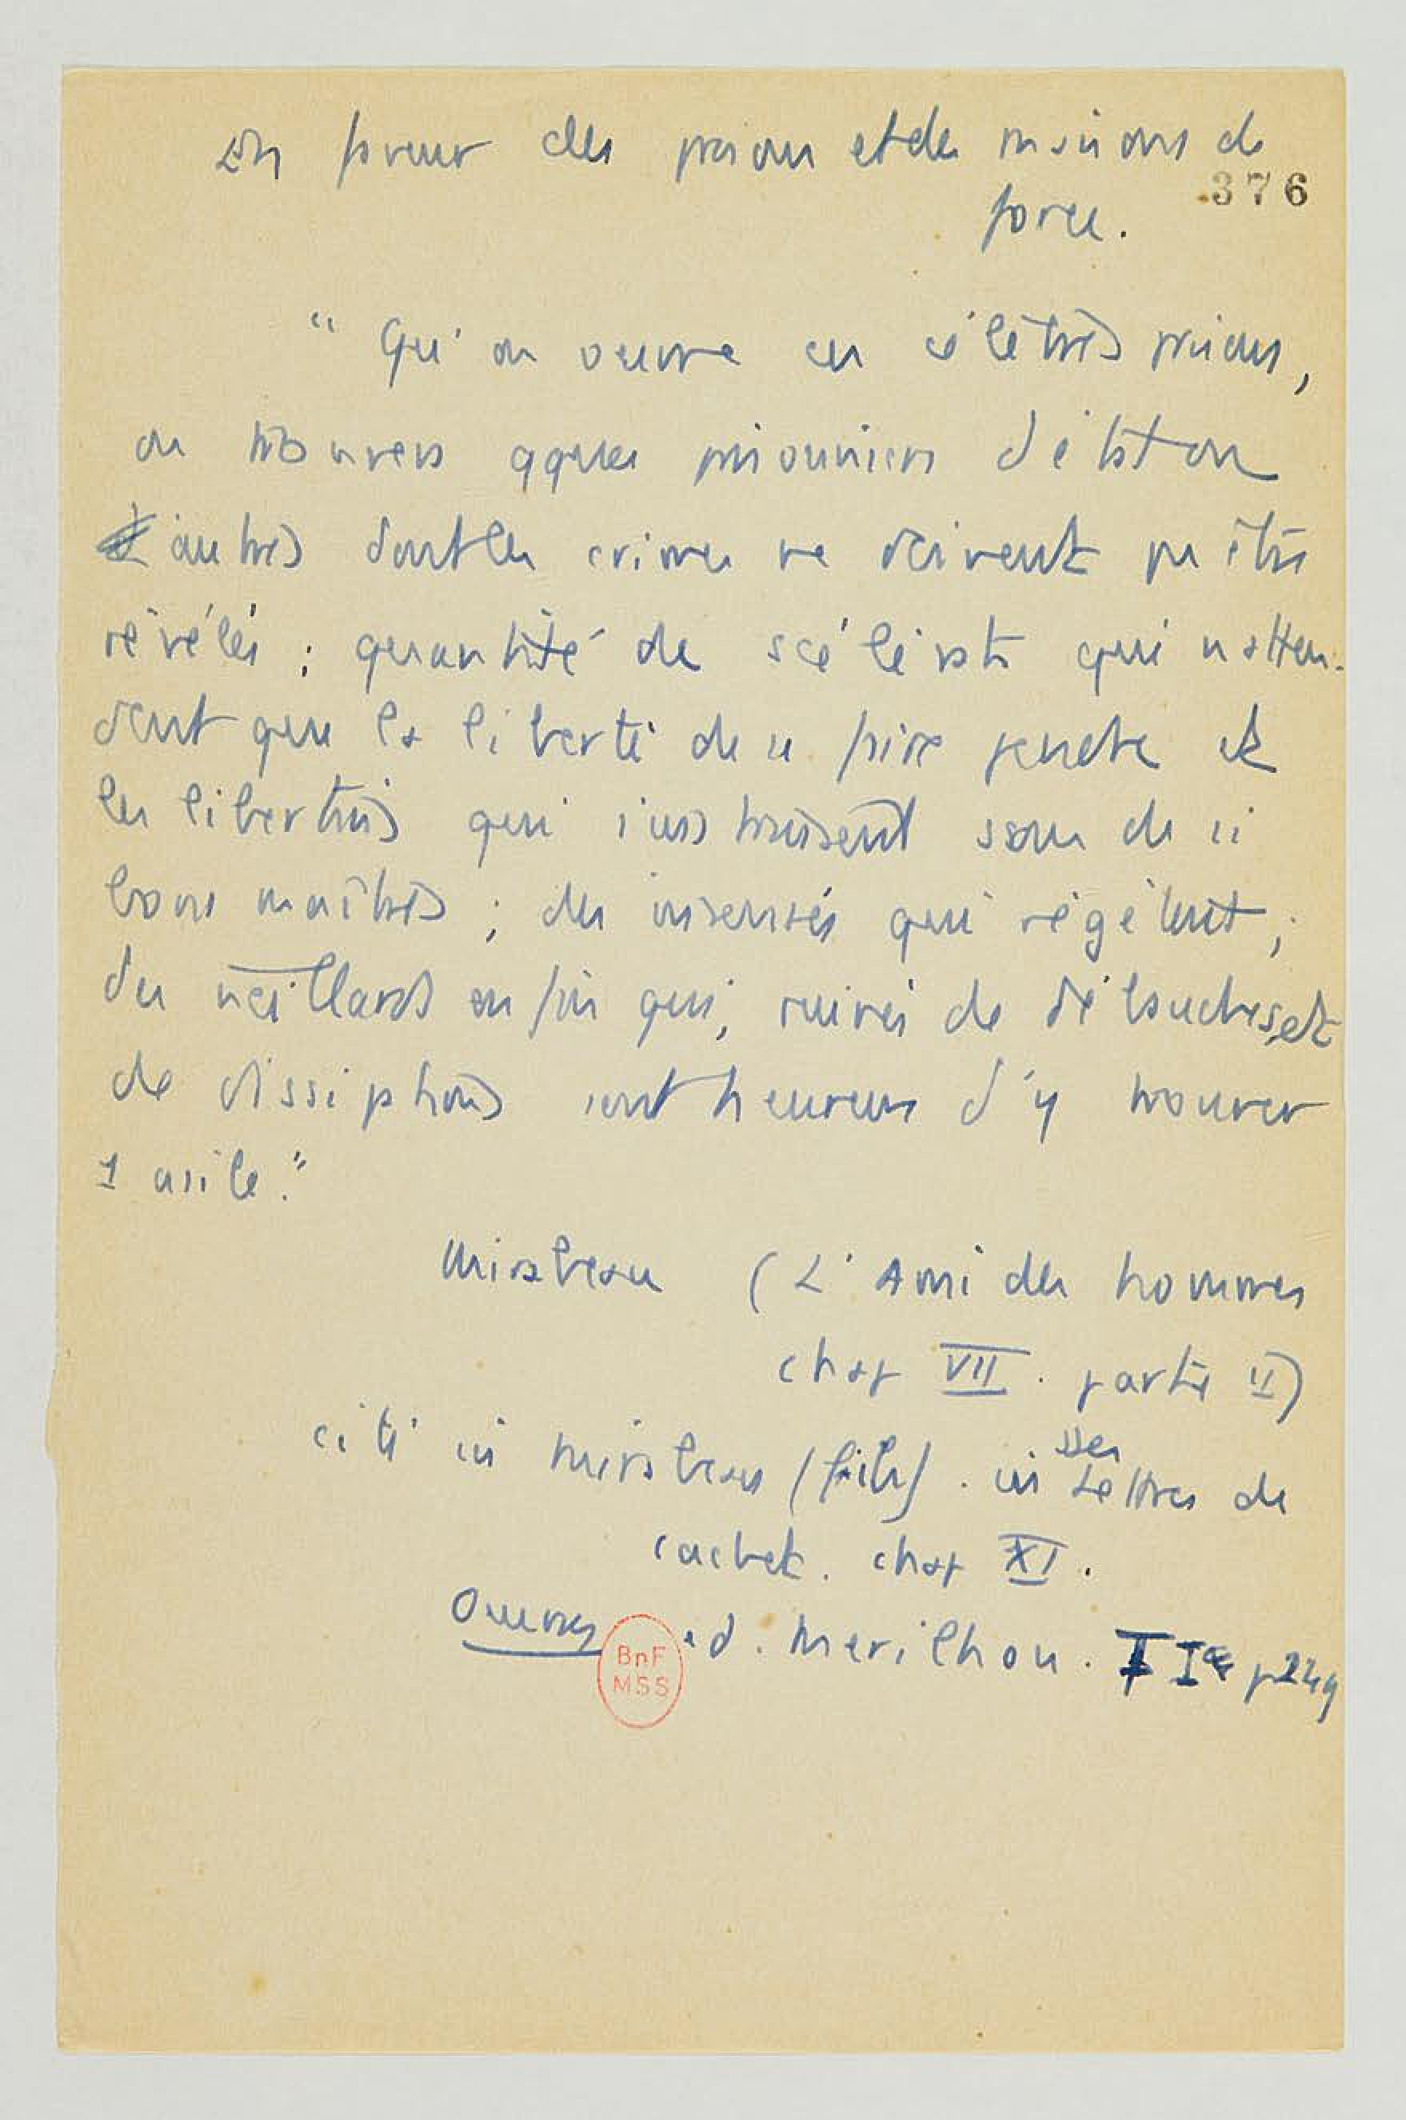 En faveur des prisons et des maisons de
376
force.
"Qu'on ouvre ces célèbres prisons,
on trouvera qques prisonniers d'état ou
autres dont les crimes ne doivent pas être
révélés ; quantité de scélérats qui n'atten-
dent que la liberté de se faire pendre et
les libertins qui s'instruisent sous de si
bons maîtres ; des insensés qui végètent ;
des vieillards enfin qui, ruinés de débauches et
de dissipations sont heureux d'y trouver
1 asile."
Mirabeau (L'Ami des hommes
chap VII. partie II)
cité in Mirabeau (fils). in des Lettres de
cachet. chap XI.
Oeuvres ed. Merilhou. T I p 249
BnF
MSS